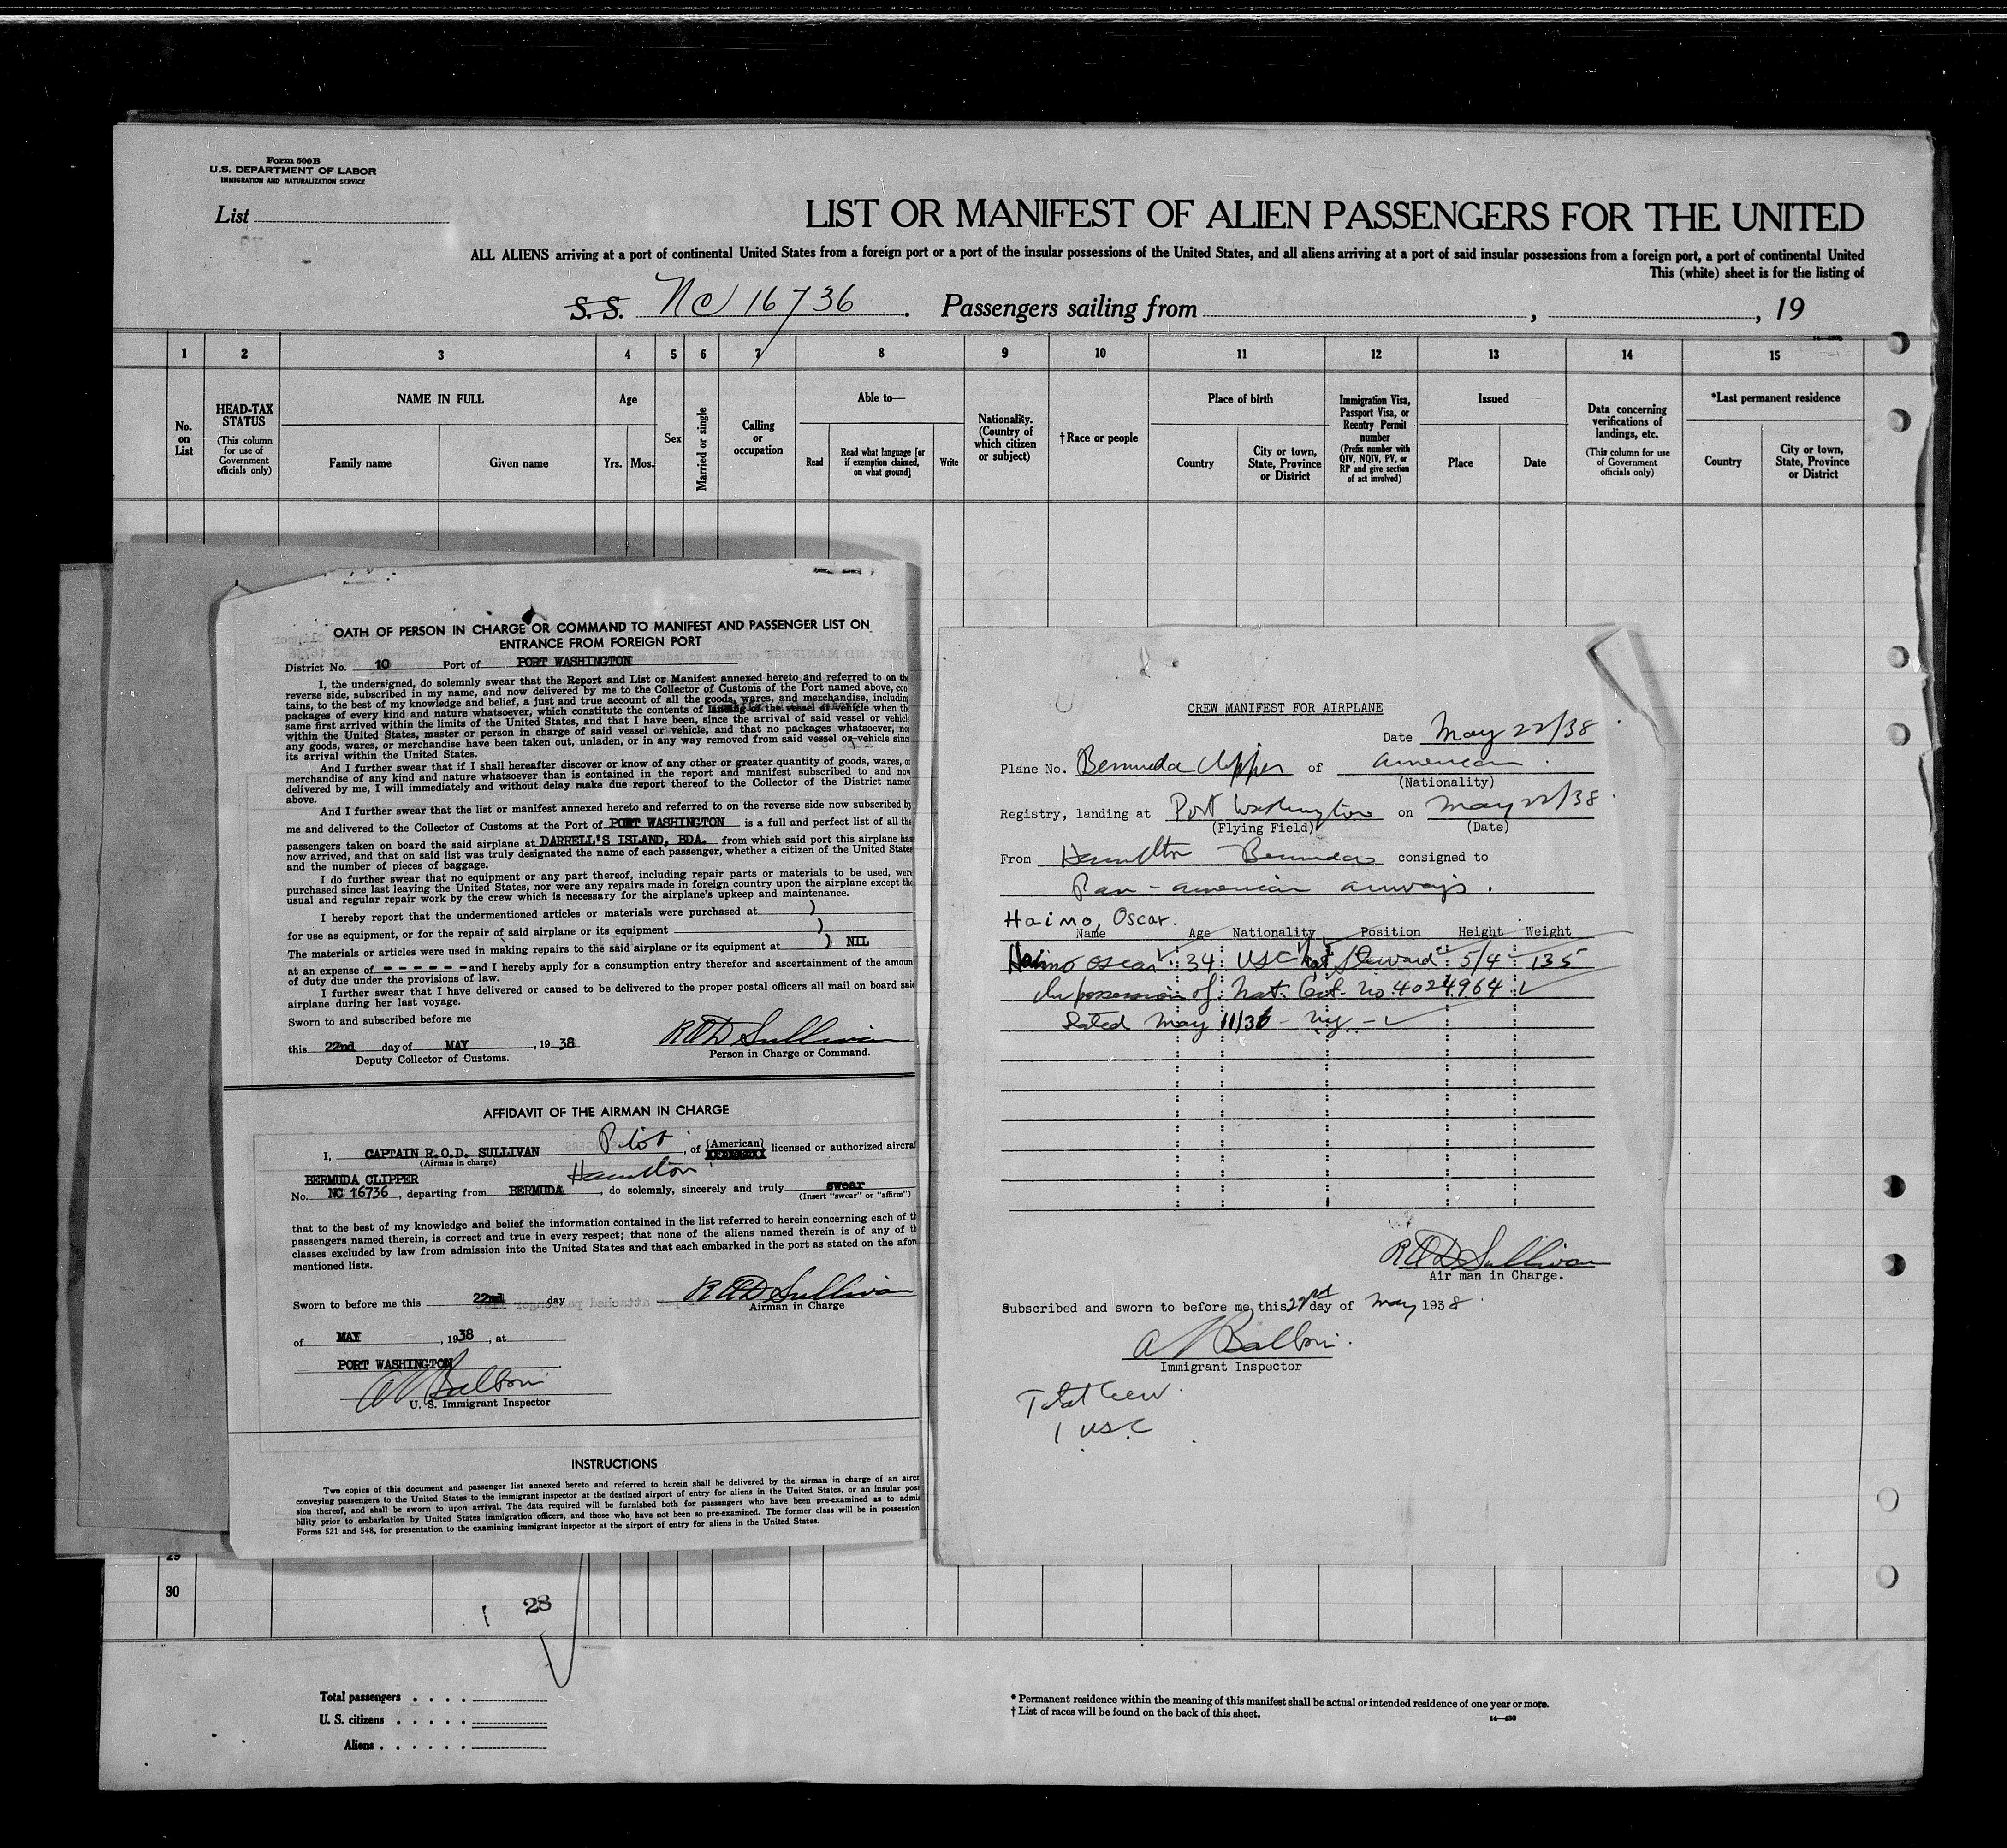 Form 500 B
U.S. DEPARTMENT OF LABOR
IMMIGRATION AND NATURALIZATION SERVICE
List
LIST OR MANIFEST OF ALIEN PASSENGERS FOR THE UNITED
ALL ALIENS arriving at a port of continental United States from a foreign port or a port of the insular possessions of the United States, and all aliens arriving at a port of said insular possessions from a foreign port, a port of continental United
This (white) sheet is for the listing of
S.S. NC 16736. Passengers sailing from , , 19
1 2 3 4 5 6 7 8 9 10 11 12 13 14 15
No. on List
HEAD-TAX STATUS (This column for use of Government officials only)
NAME IN FULL
Family name Given name
Age
Yrs. Mos.
Sex
Married or single
Calling or occupation
Able to—
Read
Read what language [or if exemption claimed, on what ground]
Write
Nationality. (Country of which citizen or subject)
†Race or people
Place of birth
Country
City or town, State, Province or District
Immigration Visa, Passport Visa, or Reentry Permit number (Prefix number with QIV, NQIV, PV, or RP and give section of act involved)
Issued
Place Date
Data concerning verifications of landings, etc. (This column for use of Government officials only)
*Last permanent residence
Country
City or town, State, Province or District
OATH OF PERSON IN CHARGE OR COMMAND TO MANIFEST AND PASSENGER LIST ON
ENTRANCE FROM FOREIGN PORT
District No. 10 Port of PORT WASHINGTON
I, the undersigned, do solemnly swear that the Report and List or Manifest annexed hereto and referred to on the
reverse side, subscribed in my name, and now delivered by me to the Collector of Customs of the Port named above, con-
tains, to the best of my knowledge and belief, a just and true account of all the goods, wares, and merchandise, including
packages of every kind and nature whatsoever, which constitute the contents of landing of the vessel or vehicle when the
same first arrived within the limits of the United States, and that I have been, since the arrival of said vessel or vehicle
within the United States, master or person in charge of said vessel or vehicle, and that no packages whatsoever, nor
any goods, wares, or merchandise have been taken out, unladen, or in any way removed from said vessel or vehicle since
its arrival within the United States.
And I further swear that if I shall hereafter discover or know of any other or greater quantity of goods, wares, or
merchandise of any kind and nature whatsoever than is contained in the report and manifest subscribed to and now
delivered by me, I will immediately and without delay make due report thereof to the Collector of the District named
above.
And I further swear that the list or manifest annexed hereto and referred to on the reverse side now subscribed by
me and delivered to the Collector of Customs at the Port of PORT WASHINGTON is a full and perfect list of all the
passengers taken on board the said airplane at DARRELL'S ISLAND, BDA. from which said port this airplane has
now arrived, and that on said list was truly designated the name of each passenger, whether a citizen of the United States
and the number of pieces of baggage.
I do further swear that no equipment or any part thereof, including repair parts or materials to be used, were
purchased since last leaving the United States, nor were any repairs made in foreign country upon the airplane except the
usual and regular repair work by the crew which is necessary for the airplane's upkeep and maintenance.
I hereby report that the undermentioned articles or materials were purchased at )
for use as equipment, or for the repair of said airplane or its equipment )
The materials or articles were used in making repairs to the said airplane or its equipment at ) NIL
at an expense of - - - - - - and I hereby apply for a consumption entry therefor and ascertainment of the amoun
of duty due under the provisions of law.
I further swear that I have delivered or caused to be delivered to the proper postal officers all mail on board said
airplane during her last voyage.
Sworn to and subscribed before me
this 22nd day of MAY, 1938 ROD Sullivan
Deputy Collector of Customs. Person in Charge or Command.
AFFIDAVIT OF THE AIRMAN IN CHARGE
I, CAPTAIN R.O.D. SULLIVAN Pilot, of {American} licensed or authorized aircraf
(Airman in charge)
BERMUDA CLIPPER Hamilton
No. NC 16736, departing from BERMUDA, do solemnly, sincerely and truly swear
(Insert "swear" or "affirm")
that to the best of my knowledge and belief the information contained in the list referred to herein concerning each of th
passengers named therein, is correct and true in every respect; that none of the aliens named therein is of any of th
classes excluded by law from admission into the United States and that each embarked in the port as stated on the afore
mentioned lists.
Sworn to before me this 22nd day ROD Sullivan
Airman in Charge
of MAY, 1938, at
PORT WASHINGTON
U. S. Immigrant Inspector
INSTRUCTIONS
Two copies of this document and passenger list annexed hereto and referred to herein shall be delivered by the airman in charge of an aircr
conveying passengers to the United States to the immigrant inspector at the destined airport of entry for aliens in the United States, or an insular poss
sion thereof, and shall be sworn to upon arrival. The data required will be furnished both for passengers who have been pre-examined as to admis
bility prior to embarkation by United States immigration officers, and those who have not been so pre-examined. The former class will be in possession
Forms 521 and 548, for presentation to the examining immigrant inspector at the airport of entry for aliens in the United States.
CREW MANIFEST FOR AIRPLANE
Date May 22/38
Plane No. Bermuda Clipper of American
(Nationality)
Registry, landing at Port Washington on May 22/38.
(Flying Field) (Date)
From Hamilton - Bermuda consigned to
Pan-American Airways.
Haimo, Oscar.
Name Age Nationality Position Height Weight
Haimo Oscar 34 USC Nat Steward 5/4 135
In possession of Nat. Cert. No 4024964
Dated May 11/36 - NY.
ROD Sullivan
Air man in Charge.
Subscribed and sworn to before me this 22nd day of May 1938.
Immigrant Inspector
Total Crew.
1 USC
29
30
1 28
Total passengers
U. S. citizens
Aliens
* Permanent residence within the meaning of this manifest shall be actual or intended residence of one year or more.
† List of races will be found on the back of this sheet.
14—430